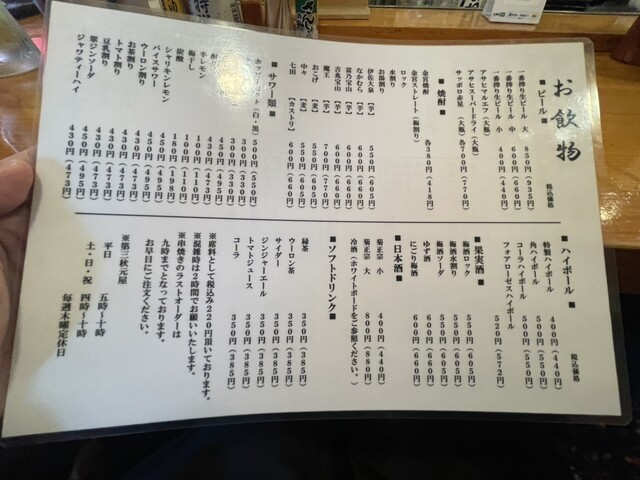 お飲物
■ビール■
税込価格
一番搾り生ビール 大 850円(935円)
一番搾り生ビール 中 600円(660円)
一番搾り生ビール 小 400円(440円)
アサヒマルエフ(大瓶) 700円(770円)
アサヒスーパードライ(大瓶)
サッポロ赤星(大瓶)
■焼酎■
金宮焼酎 各380円(418円)
金宮ストレート(梅割り)
ロック
水割り
お湯割り
伊佐大泉【芋】 550円(605円)
なかむら【芋】 600円(660円)
富乃宝山【芋】 600円(660円)
吉兆宝山【芋】 600円(660円)
魔王【芋】 700円(770円)
おこげ【麦】 500円(550円)
中々【麦】 500円(550円)
七田【カストリ】 600円(660円)
■サワー類■
(白・黒) 500円(550円)
300円(330円)
300円(330円)
450円(495円)
生レモン 430円(473円)
梅干し 100円(110円)
炭酸 180円(198円)
シャリキンレモン 450円(495円)
バイスサワー 450円(495円)
ウーロン割り 430円(473円)
お茶割り 430円(473円)
トマト割り 430円(473円)
豆乳割り 450円(495円)
翠ジンソーダ 450円(495円)
ジャワティーハイ 430円(473円)
■ハイボール■
税込価格
特製ハイボール 400円(440円)
角ハイボール 500円(550円)
コーラハイボール 500円(550円)
フォアローゼスハイボール 520円(572円)
■果実酒■
梅酒ロック 550円(605円)
梅酒水割り 550円(605円)
梅酒ソーダ 550円(605円)
ゆず酒 600円(660円)
にごり梅酒 600円(660円)
■日本酒■
菊正宗 小 400円(440円)
菊正宗 大 800円(880円)
冷酒(ホワイトボードをご参照ください。)
■ソフトドリンク■
緑茶 350円(385円)
ウーロン茶 350円(385円)
サイダー 350円(385円)
ジンジャーエール 350円(385円)
トマトジュース 350円(385円)
コーラ 350円(385円)
※席料として税込み220円頂いております。
※混雑時は2時間でお願いいたします。
※串焼きのラストオーダーは
九時までとなっております。
お早目にご注文ください。
※第三秋元屋
平日 五時〜十時
土・日・祝 四時〜十時
毎週木曜定休日